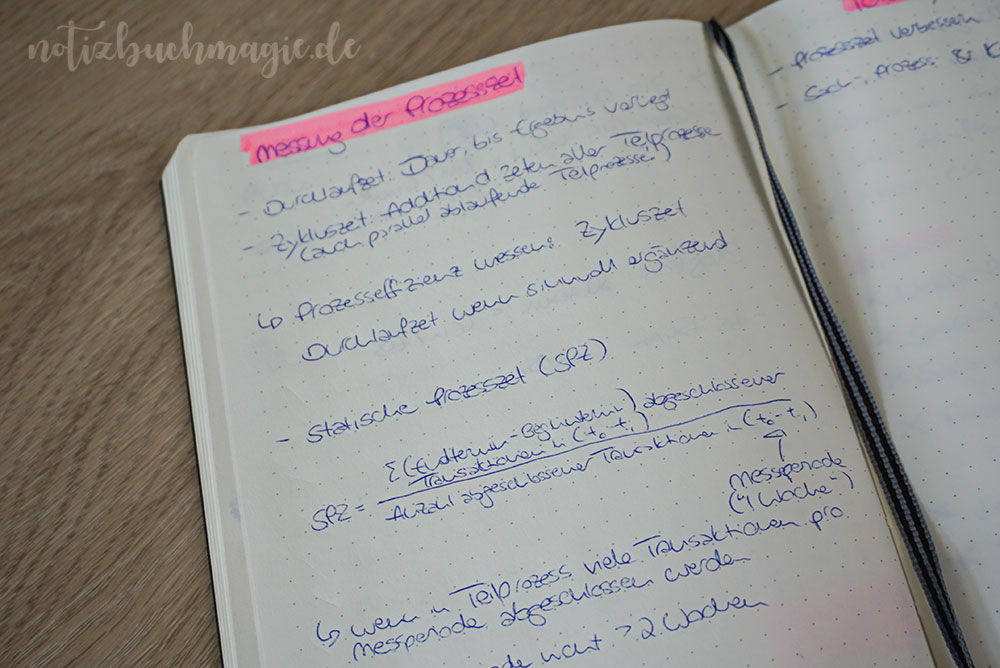 notizbuchmagie.de
Messung der Prozesszeit
- Durchlaufzeit: Dauer, bis Ergebnis vorliegt
- Zykluszeit: Addition d. Zeiten aller Teilprozesse
(auch parallel ablaufende Teilprozesse!)
↳ Prozesseffizienz messen: Zykluszeit
Durchlaufzeit wenn sinnvoll ergänzend
- Statische Prozesszeit (SPZ)
SPZ = Σ(Endtermin - Beginntermin) abgeschlossener
Transaktionen in (t₀-t₁)
Anzahl abgeschlossener Transaktionen in (t₀-t₁)
Messperiode
("1 Woche")
↳ wenn in Teilprozess viele Transaktionen pro
Messperiode abgeschlossen werden
nicht > 2 Wochen
- Prozesszeit verbessern
- Sach-, Prozess- &